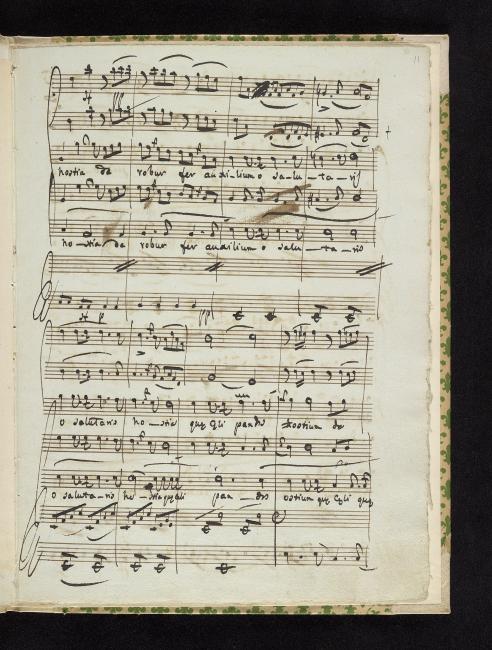 11
hostia da robur fer auxilium o salu-ta-ris
ho-stia da robur fer auxilium o salu-ta-ris
o salutaris ho-stia quę cęli pandis hostium da
o saluta-ris ho-stia quę cęli pan-dis ostium quę cęli quę